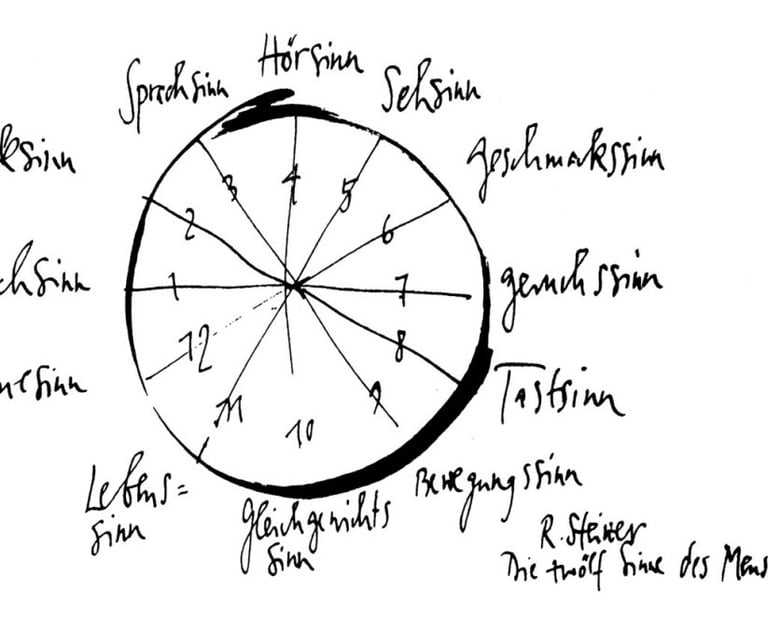 Hörsinn
Sprachsinn
Sehsinn
ksinn
geschmakssinn
3
4
5
2
6
chsinn
1
7
geruchssinn
12
8
sinn
Tastsinn
11
10
9
Lebens=
sinn
gleichgewichts
sinn
Bewegungssinn
R. Steiner
Die zwölf Sinne des Mens